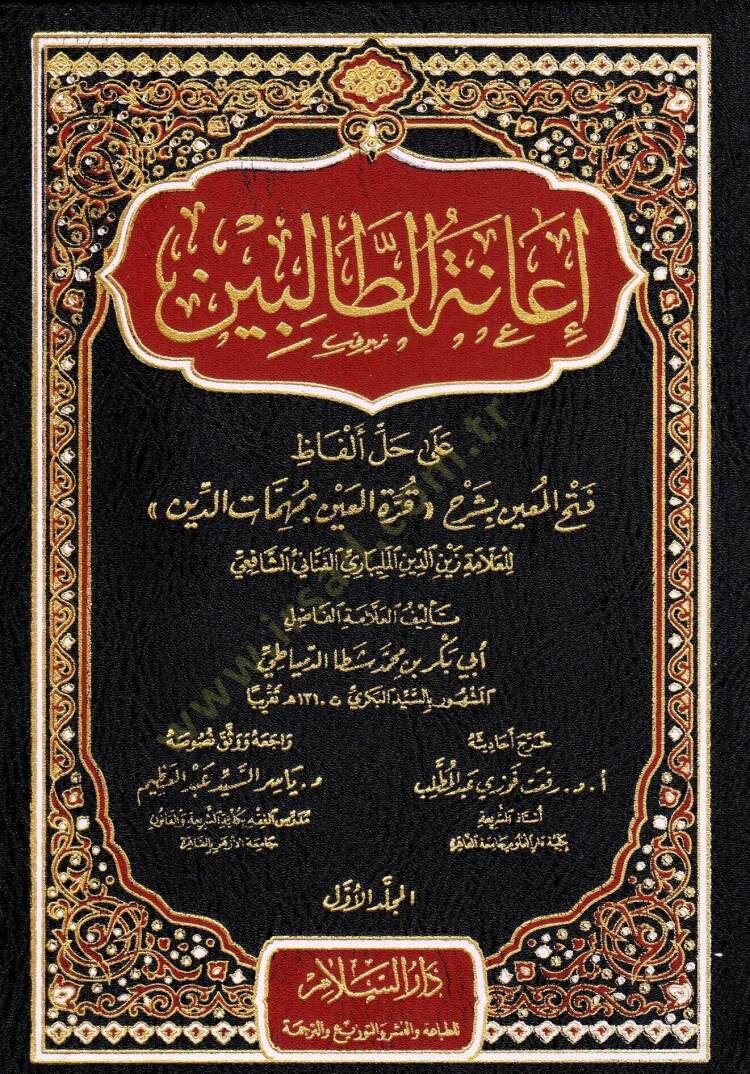 إِعَانَةُ الطَّالِبِين
عَلَى حَلِّ أَلْفَاظِ
فَتْحِ الْمُعِين بِشَرْحِ « قُرَّةِ الْعَيْن بِمُهِمَّاتِ الدِّين »
لِلْعَلَّامَةِ زَيْنِ الدِّينِ الْمَلِيبَارِيِّ الْفَنَّانِيِّ الشَّافِعِيِّ
تَأْلِيفُ الْعَلَّامَةِ الْفَاضِلِ
أَبِي بَكْرِ بْنِ مُحَمَّد شَطَا الدِّمْيَاطِيِّ
الْمَشْهُورِ بِالسَّيِّدِ الْبَكْرِيِّ ت ١٣١٠هـ تَقْرِيبًا
خَرَّجَ أَحَادِيثَهُ
أ . د . رفعت فوزي عبد المطلب
أستاذ الشريعة
بكلية دار العلوم جامعة القاهرة
رَاجَعَهُ وَوَثَّقَ نُصُوصَهُ
د . ياسر السيد عبد العظيم
مدرس الفقه بكلية الشريعة والقانون
جامعة الأزهر بالقاهرة
المجلد الأول
دار السلام
للطباعة والنشر والتوزيع والترجمة
www.irsad.com.tr